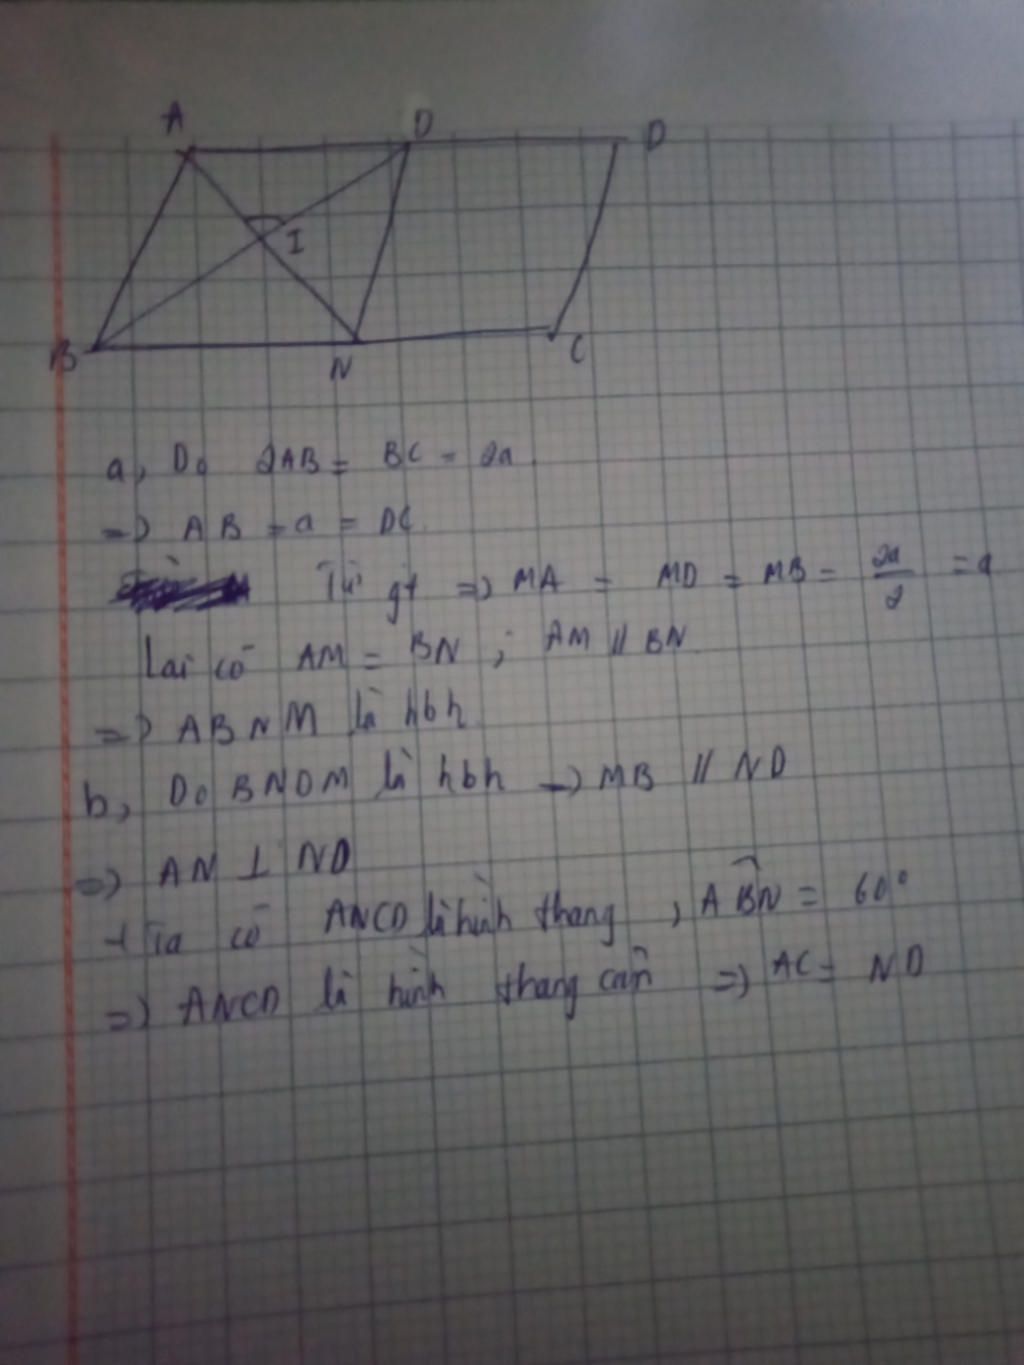 A D D
I
B N C
a, Do 2AB = BC = 2a
=> AB = a = DC
Từ gt => MA = MD = MB = 2a/2 = a
Lại có AM = BN ; AM // BN
=> ABNM là hbh
b, Do BNDM là hbh => MB // ND
=> AN ⊥ ND
+ Ta có ANCD là hình thang , ABN = 60°
=> ANCD là hình thang cân => AC = ND